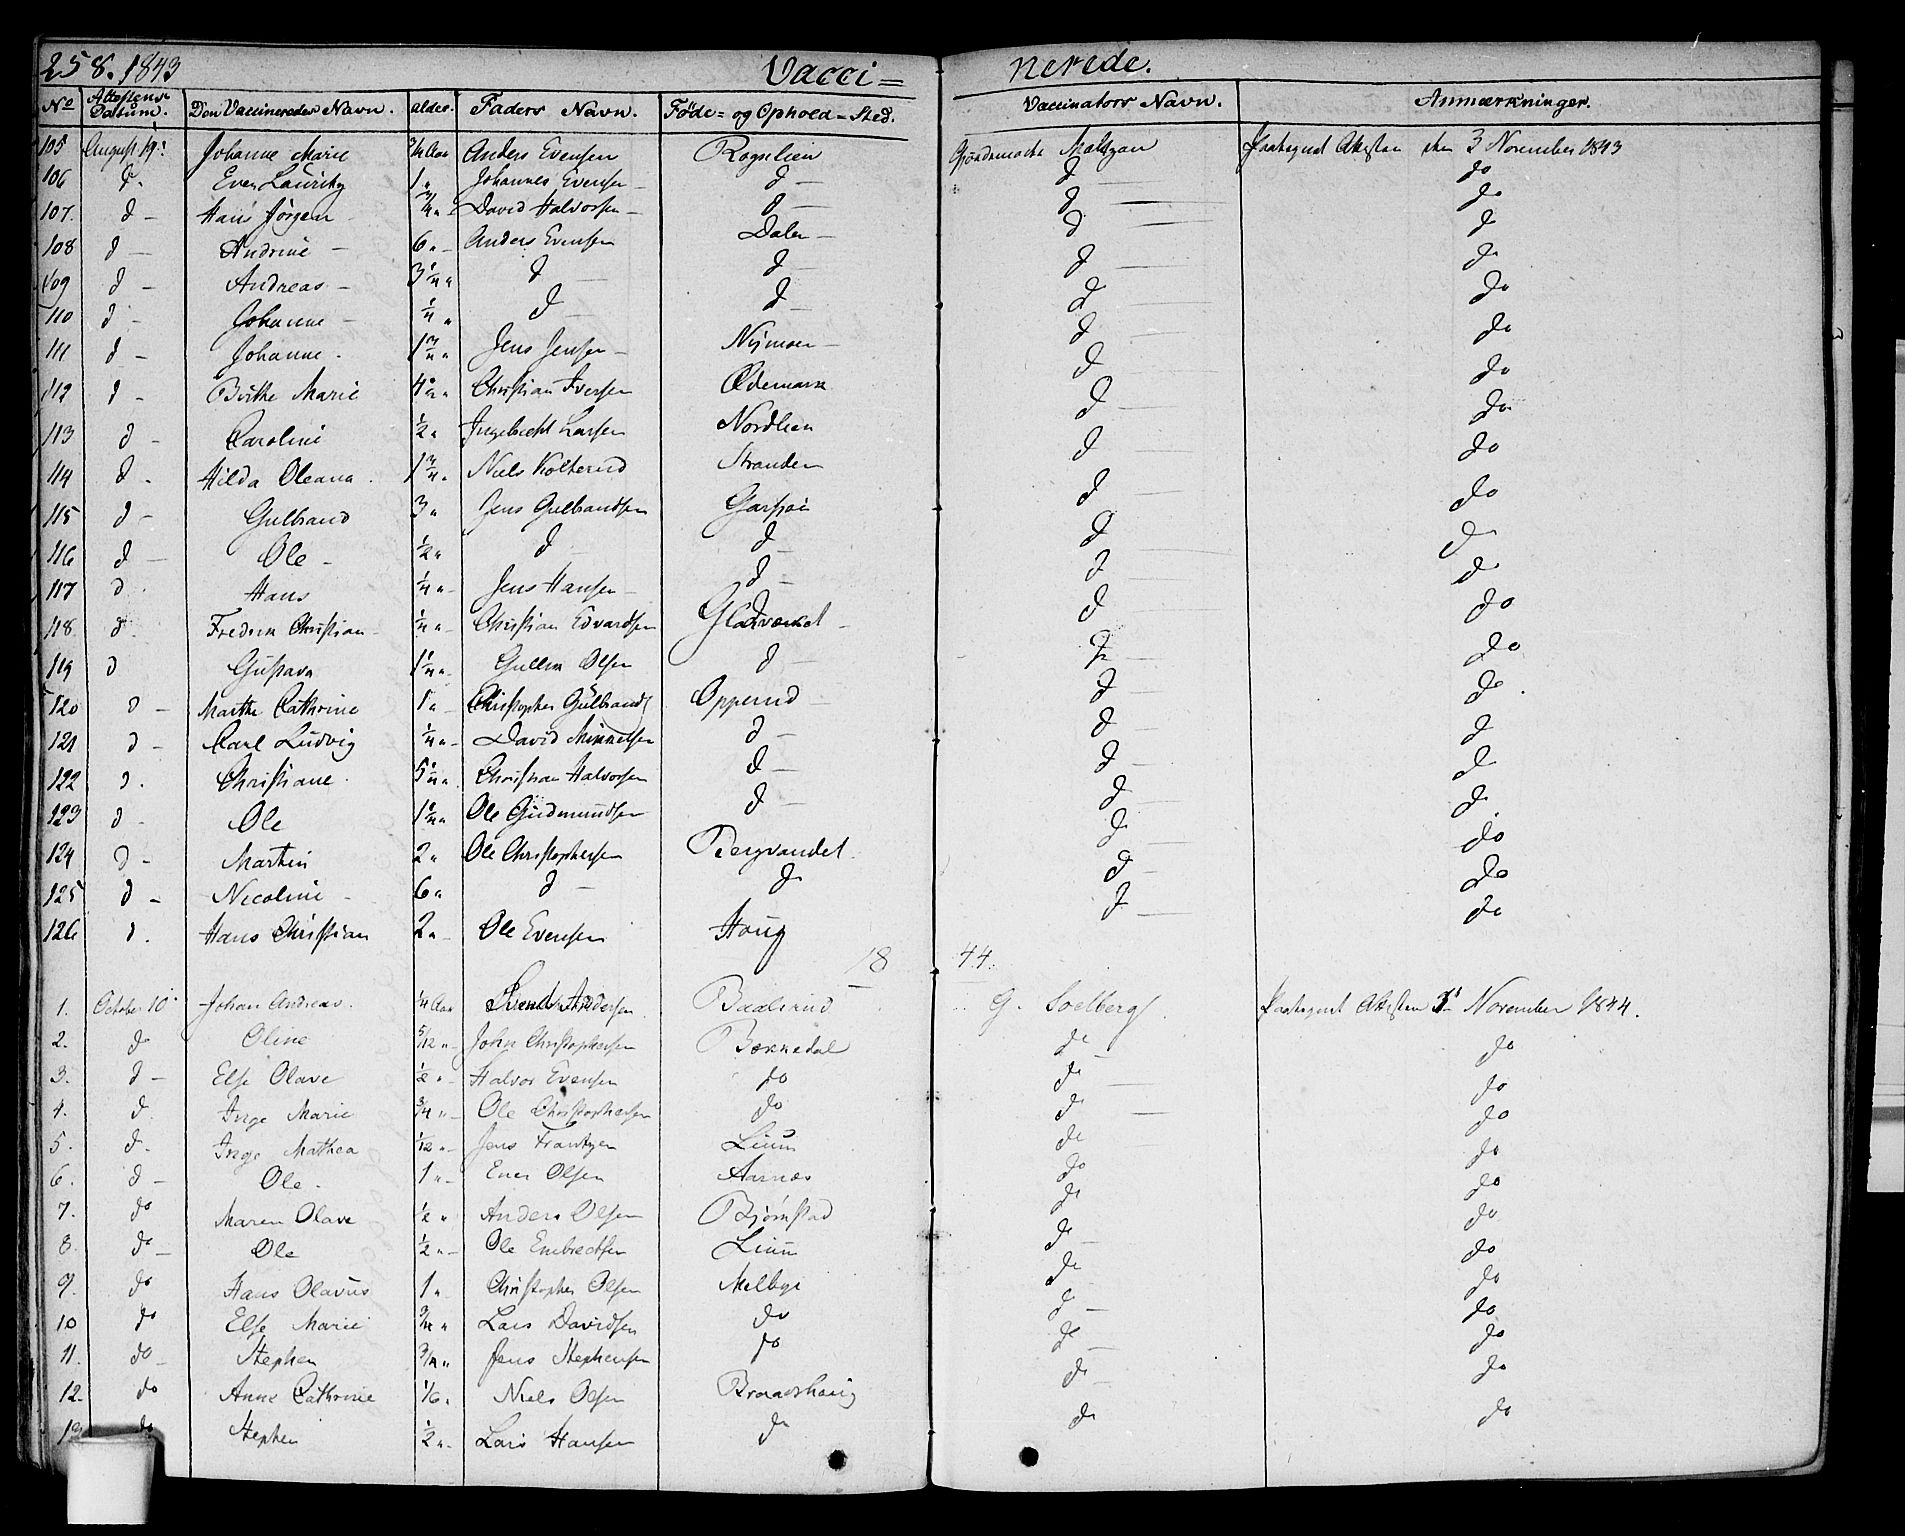 258. 1843 Vacci= nerede.
No Attestens Datum. Den Vaccineredes Navn. Alder. Faders Navn. Føde= og Ophold= Sted. Vaccinators Navn. Anmærkninger.
105 August 19. Johanne Marie 3/4 Aar Anders Evensen Rognlien Maltzau den 3 November 1843
106 d. Even Lauritz 1 " Johannes Evensen d d do
107. d Hans Jørgen 3/4 " David Halvorsen d d do
108 d Andrine 6 " Anders Evensen Dalen d d
109 d Andreas 3 1/4 " d d d do
110 d Johanne 1/4 " d d d do
111 d Johanne 1 3/4 " Jens Jensen Nÿmoen d do
112 d Birthe Marie Christian Iversen Ødemark d do
113 d Caroline 1/2 " Ingebrecht Larsen Nordlien d do
114 d. Hilda Oleana 1 3/4 " Niels Kolterud Stranden d do
115 d Gulbrand 3 " Jens Gulbrandsen d do
116 d Ole 1/2 " d d d d
117 d Hans 1/4 " Jens Hansen d d do
118 d. Fredrik Christian 1/4 " Christian Edvardsen Gladværket d do
119 d Gustava 1 1/4 " Gullik Olsen d d do
120 d Marthe Cathrine 1 " Christopher Gulbrands Opperud d do
121 d Karl Ludvig 1/4 " David Mikkelsen d d d
122 d. Christiane 5 1/4 " Christian Halvorsen d d do
123 d Ole 1 1/4 " Ole Gudmundsen d d do
124 d Martin 2 " Ole Christophersen Bergvandet d do
125 d Nicoline 6 " d do d do
126 d. Hans Christian 2 " Ole Evensen Houg d do
18 44.
1. October 10 Johan Andreas 1/4 Aar Svend Andersen Baalsrud G. Soelberg November 1844.
2. do Oline 5/12 " John Christophersen Bækkedal do do
3. d Else Olave 1/2 " Halvor Evensen do do do
4. d. Inge Marie 3/4 " Ole Christophersen do do do
5. d. Inge Mathea 1/12 " Jens Frantzen Liuum do do
6. d Ole 1 " Even Olsen Aarnæs do do
7. do Maren Olave 1/2 " Anders Olsen Bjørnstad do do
8. do Ole 1/2 " Ole Embrechtsen Liuum do do
9. do Hans Olavus 1 " Christopher Olsen Melbye do do
10 do Else Marie 3/4 " Lars Davidsen do d do
11. do Stephen 3/4 " Jens Stephensen do do do
12. do Anne Cathrine 1/6 " Niels Olsen Braadshoug do do
13 do Stephen 1/2 " Lars Hansen do do do